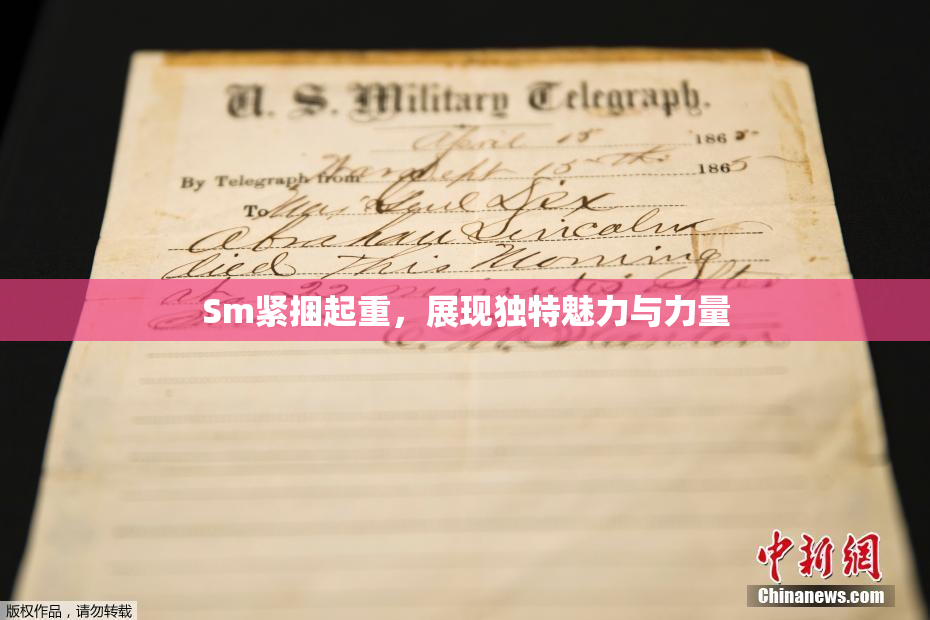 U. S. Military Telegraph.
April 15 1865
By Telegraph from War Dept 15th 1865
To Maj Genl Dix
Abraham Lincoln
died This Morning
at 22 minutes after
Sm紧捆起重，展现独特魅力与力量
E. M. Stanton
中新网
Chinanews.com
版权作品，请勿转载